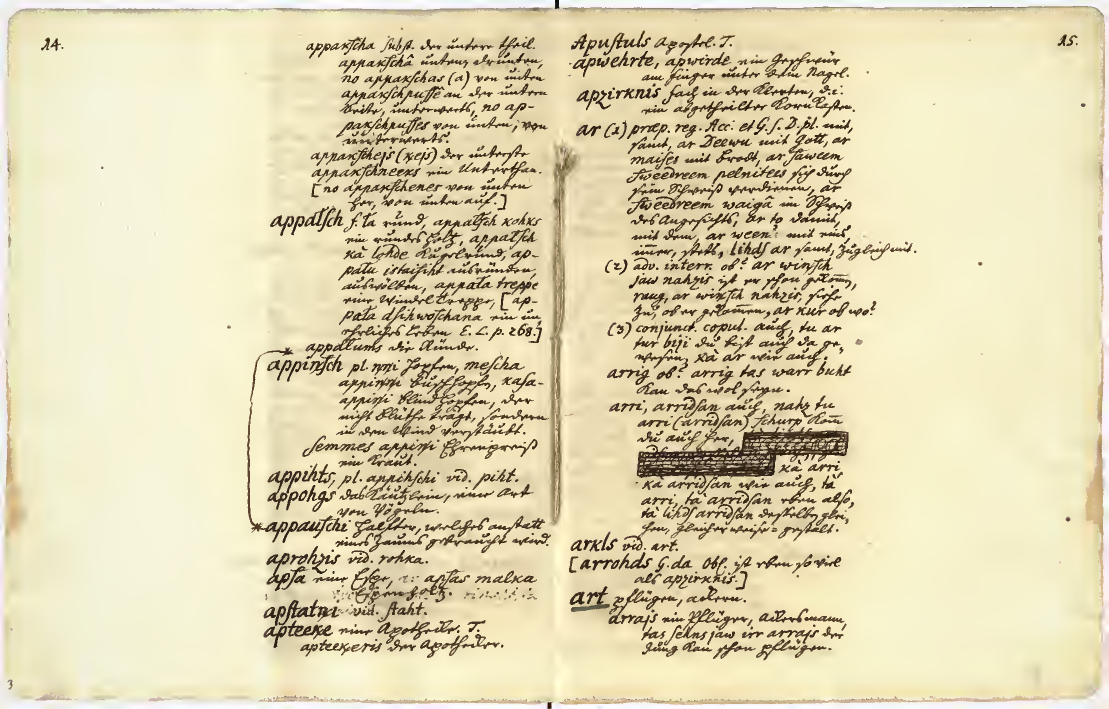 14.
appakſcha ſubſt. der untere theil.
appakſchâ unten, drunten,
no appakſchas (a) von unten
appakſchpuſſê an der untern
Seite, unterwerts, no ap-
pakſchpuſſes von unten, von
unterwerts.
appakſchejs (kejs) der unterſte
appakſchneeks ein Unterthan.
[no appakſchenes von unten
her, von unten auf.]
appalſch f. ła rund, appalſch kohks
ein rundes Holtz, appalſch
kà lohde Kugelrund, ap-
palu istaiſiht ausründen,
auswölben, appała treppe
eine Windeltreppe, [ap-
pała dſihwoſchana ein un
ehrliches Leben E. L. p. 268.]
* appałums die Ründe.
appinſch pl. nņi Hopfen, meſcha
appinņi Buſchhopfe, kaſa-
appiņi blind Hopfen, der
nicht Blüthe trägt, ſondern
in den Wind verſtäubt.
ſemmes appiņi Ehrenpreiß
ein Kraut.
appihts, pl. appihſchi vid. piht.
appohgs das Käutzlein, eine Art
von Vögeln.
* appauſchi Halffter, welches anſtatt
eines Zaums gebraucht wird.
aprohzis vid. rohka.
apſa eine Eſpe, apſas malka
Eſpenholtz.
apſtatņi vid. ſtaht.
apteeķe eine Apotheke. T.
apteeķeris der Apotheker.
3
15.
Apuſtuls Apoſtel. T.
apwehrte, apwirde ein Geſchwür
am Finger unter dem Nagel.
apzirknis fach in der Kleeten, d.i.
ein abgetheilter Kornkaſten.
ar (1) præp. reg. Acc: et G. ſ. D. pl. mit,
ſamt, ar Deewu mit Gott, ar
maiſes mit Brodt, ar ſaweem
ſweedreem pelnitees ſich durch
ſein Schweiß verdienen, ar
ſweedreem waigâ im Schweiß
des Angeſichts, ar to damit,
mit dem, ar ween: mit eins,
immer, ſtets, lihdſ ar ſamt, zugleich mit.
(2) adv. interr. ob? ar winſch
jaw nahzis iſt er ſchon gekom̄,
raug, ar winſch nahzis, ſiehe
zu, ob er gekommen, ar kur ob wo?
(3) conjunct. copul. auch, tu ar
tur biji du biſt auch da ge-
weſen, kà ar wie auch.
arrig ob? arrig tas warr buht
kan das wol ſeyn.
arri, arridſan auch, nahz tu
arri (arridſan) ſchurp kom̄
du auch her,
kà arri
kà arridſan wie auch, tà
arri, tà arridſan eben alſo,
tà lihdſ arridſan deſſelben glei-
chen, gleicher weiſe = geſtalt.
arkls vid. art.
[arrohds G. da Obſ. iſt eben ſo viel
als apzirknis.]
art pflügen, ackern.
arrajs ein Pflüger, Ackersmann,
tas ſehns jaw irr arrajs der
Jung kan ſchon pflügen.